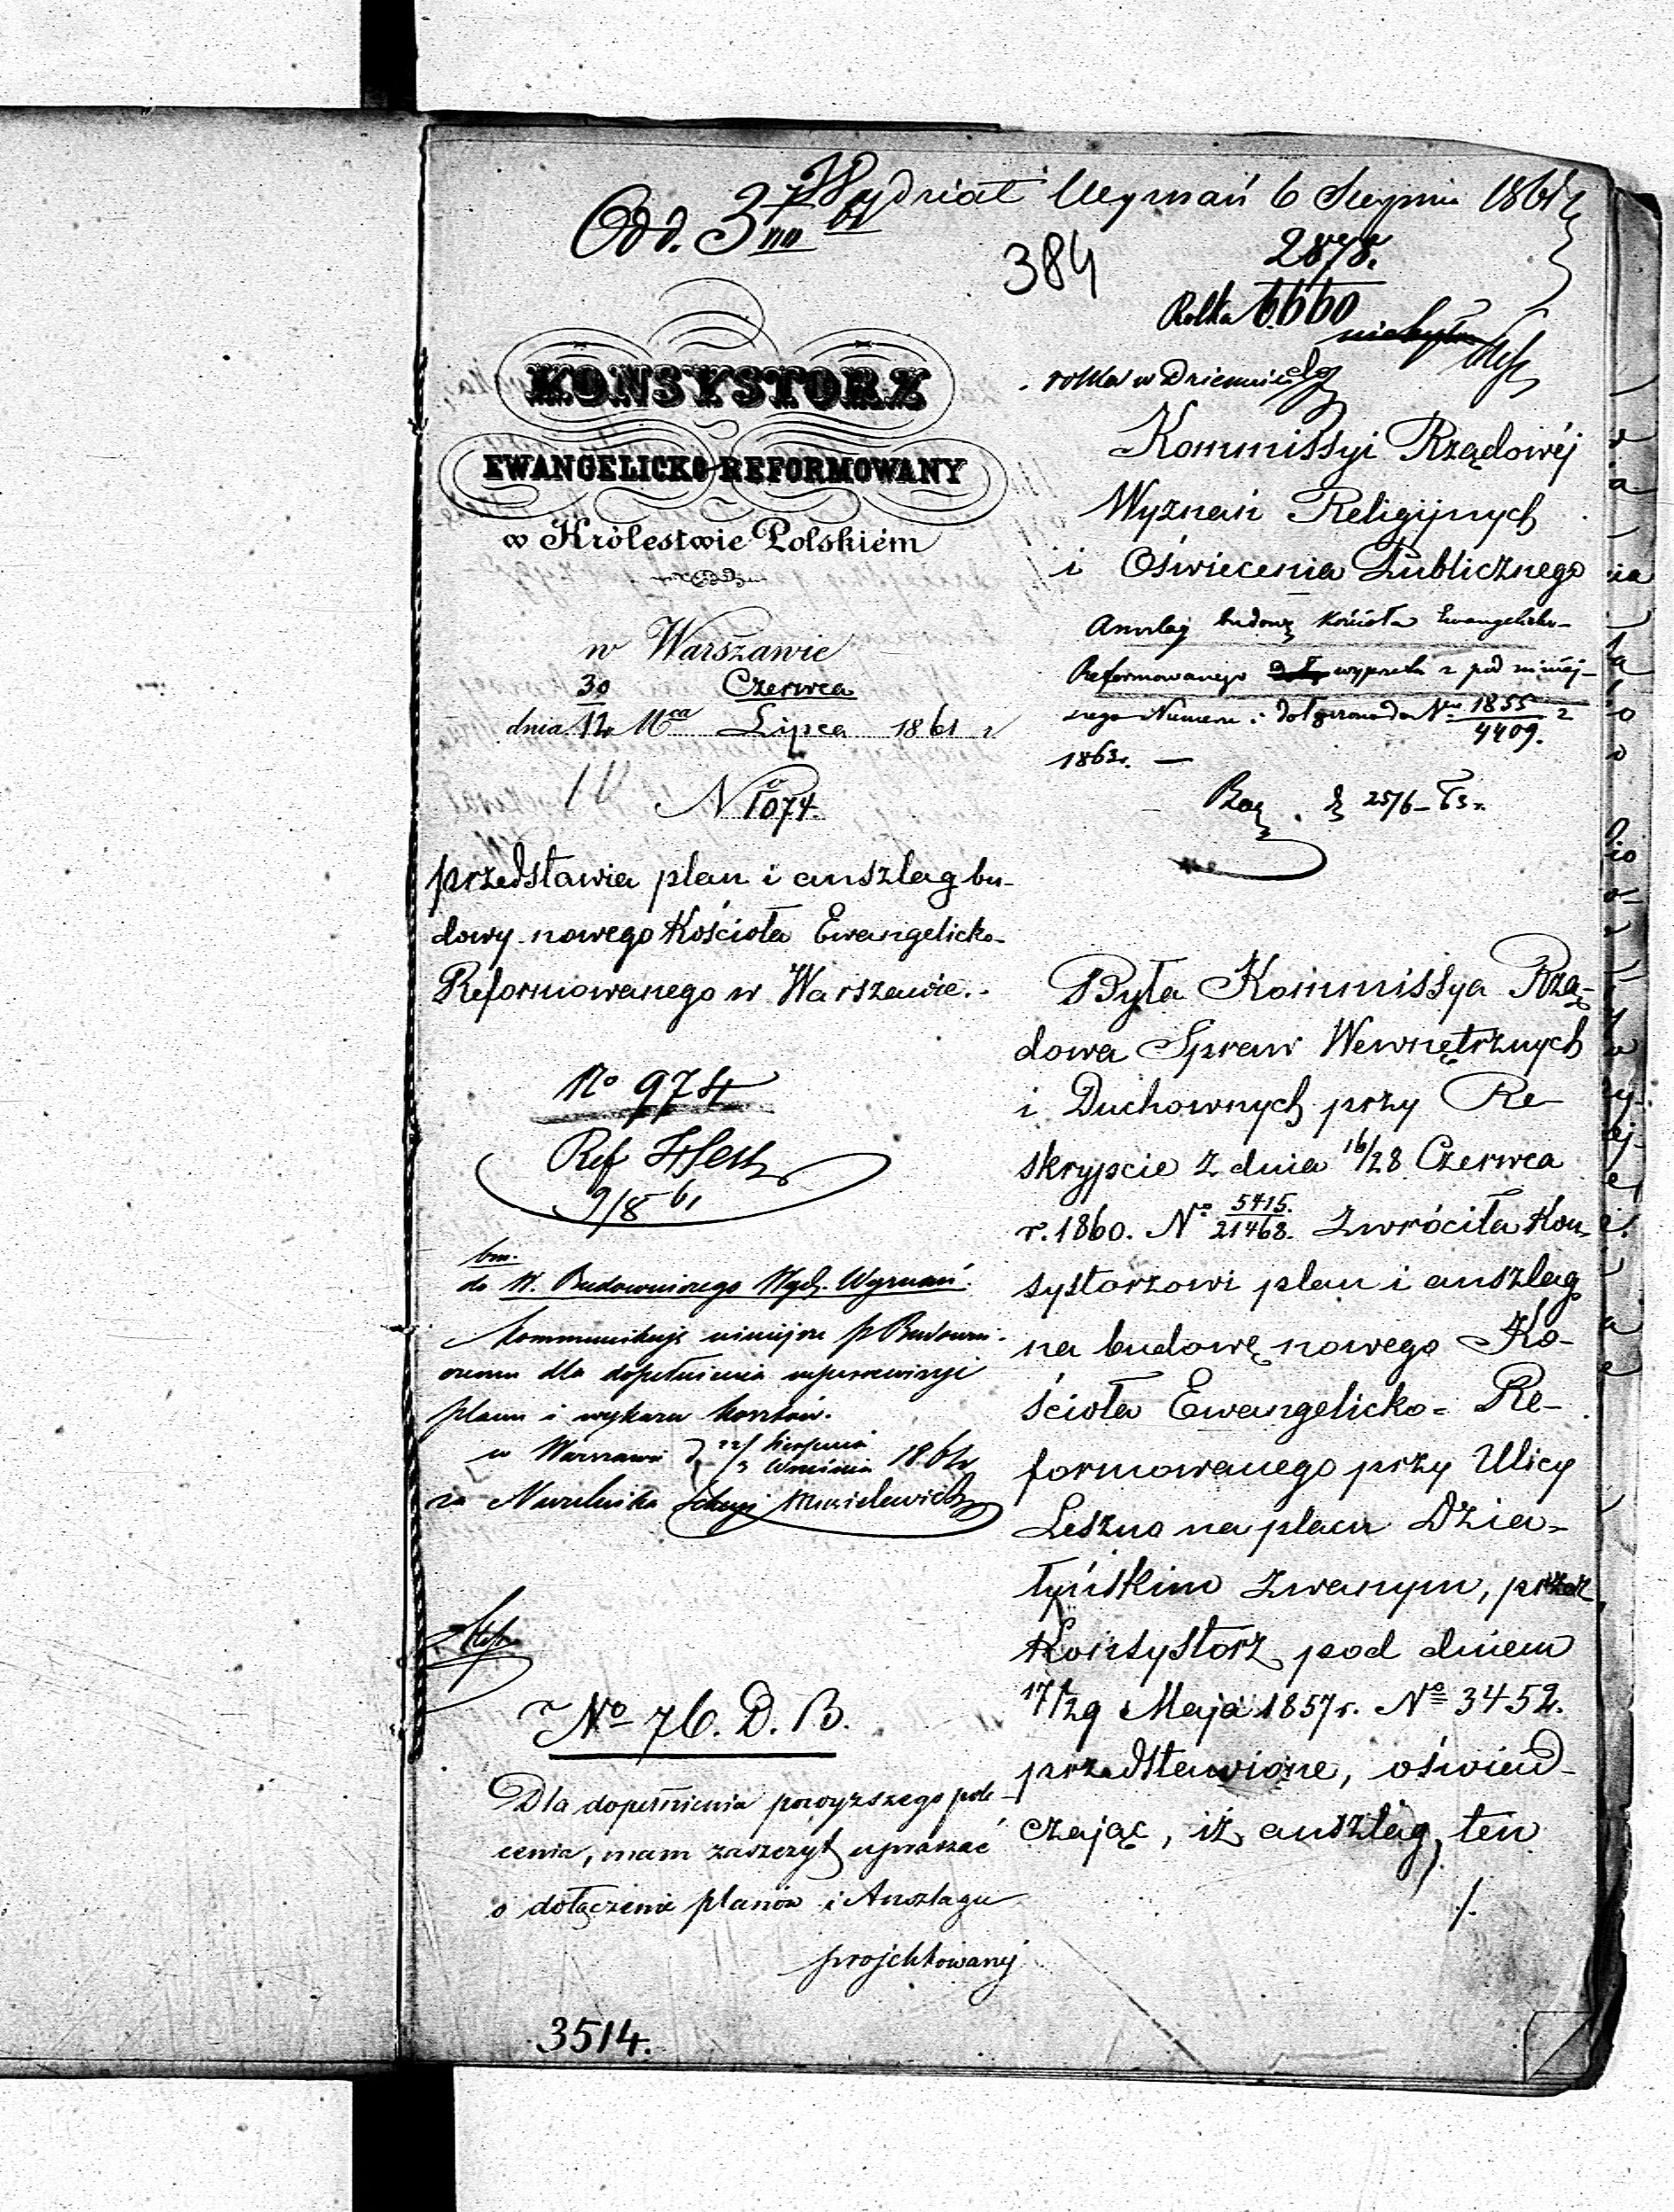 Wydział Wyznań 6 Sierpnia 1861 r
Odd. 3
384
2878.
6660
rolka w Dzienniku
KONSYSTORZ
EWANGELICKO REFORMOWANY
w Królestwie Polskiém
w Warszawie
30 Czerwca
dnia 12 Mca Lipca 1861 r
No 1074.
przedstawia plan i anszlag bu-
dowy nowego Kościoła Ewangelicko-
Reformowanego w Warszawie.
No 974
Ref
9/8 61
do W. Budowniczego Wydz. Wyznań.
Kommunikuje niniejsze p Budowni-
czemu dla dopełnienia superrewizyi
planu i wykazu kosztów.
w Warszawie d 22/3 Sierpnia Września 1861 r
za Naczelnika
No 76. D. B.
Dla dopełnienia powyższego pole-
cenia, mam zaszczyt upraszać
o dołączenie planów i Anszlagu
projektowanej
3514.
Kommissyi Rządowéj
Wyznań Religijnych
i Oświecenia Publicznego
Anszlag budowy Kościoła Ewangelicko-
Reformowanego wyszedł z pod niniej-
szego Numeru i dołączono do Nru 1855/4409. z
1863 r. —
25/6 – 63 r.
Była Kommissya Rzą-
dowa Spraw Wewnętrznych
i Duchownych przy Re-
skrypcie z dnia 16/28 Czerwca
r. 1860. No 5415./21468. zwróciła Kon-
systorzowi plan i anszlag
na budowę nowego Ko-
ścioła Ewangelicko- Re-
formowanego przy Ulicy
Leszno na placu Dzia-
łyńskim zwanym, przez
Konsystorz pod dniem
17/29 Maja 1857 r. No 3452.
przedstawione, oświad-
czając, iż anszlag ten
./.